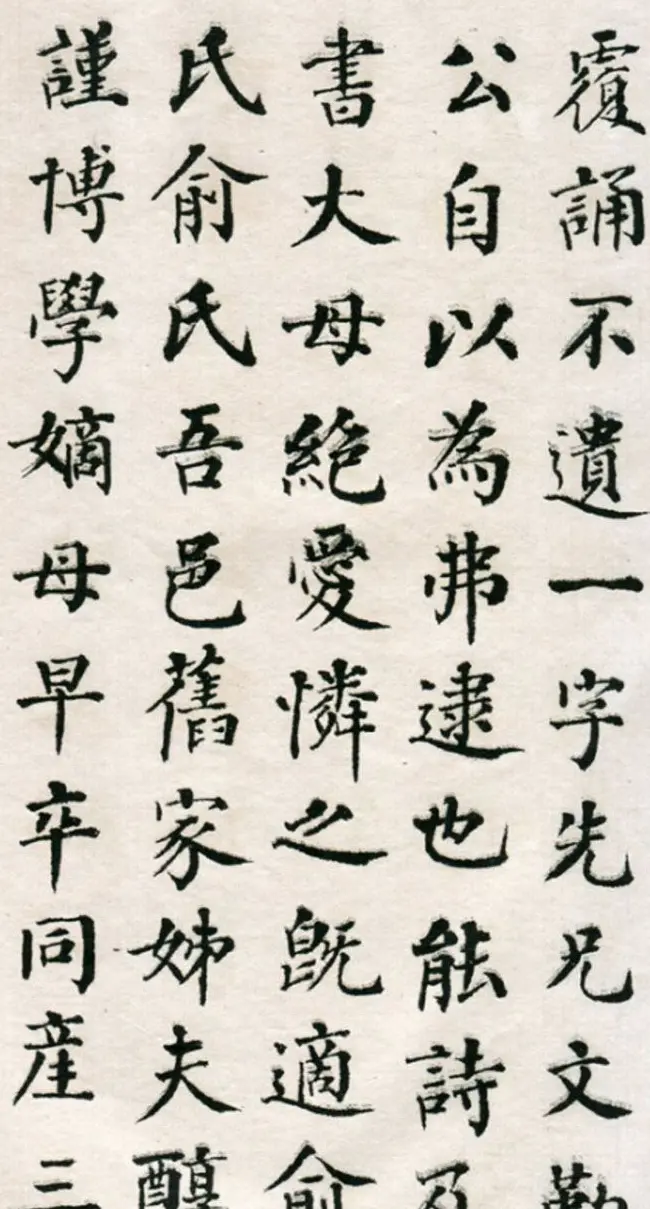 覆誦不遺一字先兄文勤
公自以為弗逮也能詩及
書大母絶愛憐之既適俞
氏俞氏吾邑舊家姊夫醇
謹博學嫡母早卒同産三